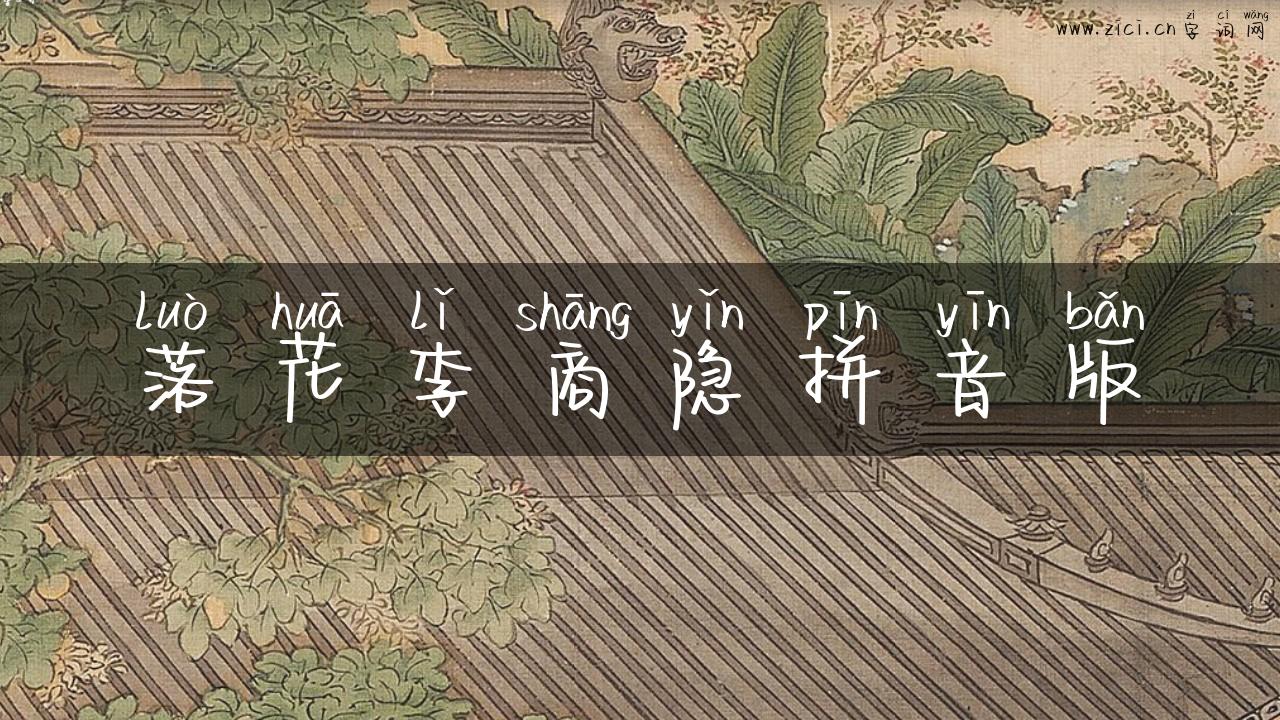 zì cí wǎng
www.zici.cn 字 词 网
luò huā lǐ shāng yǐn pīn yīn bǎn
落 花 李 商 隐 拼 音 版